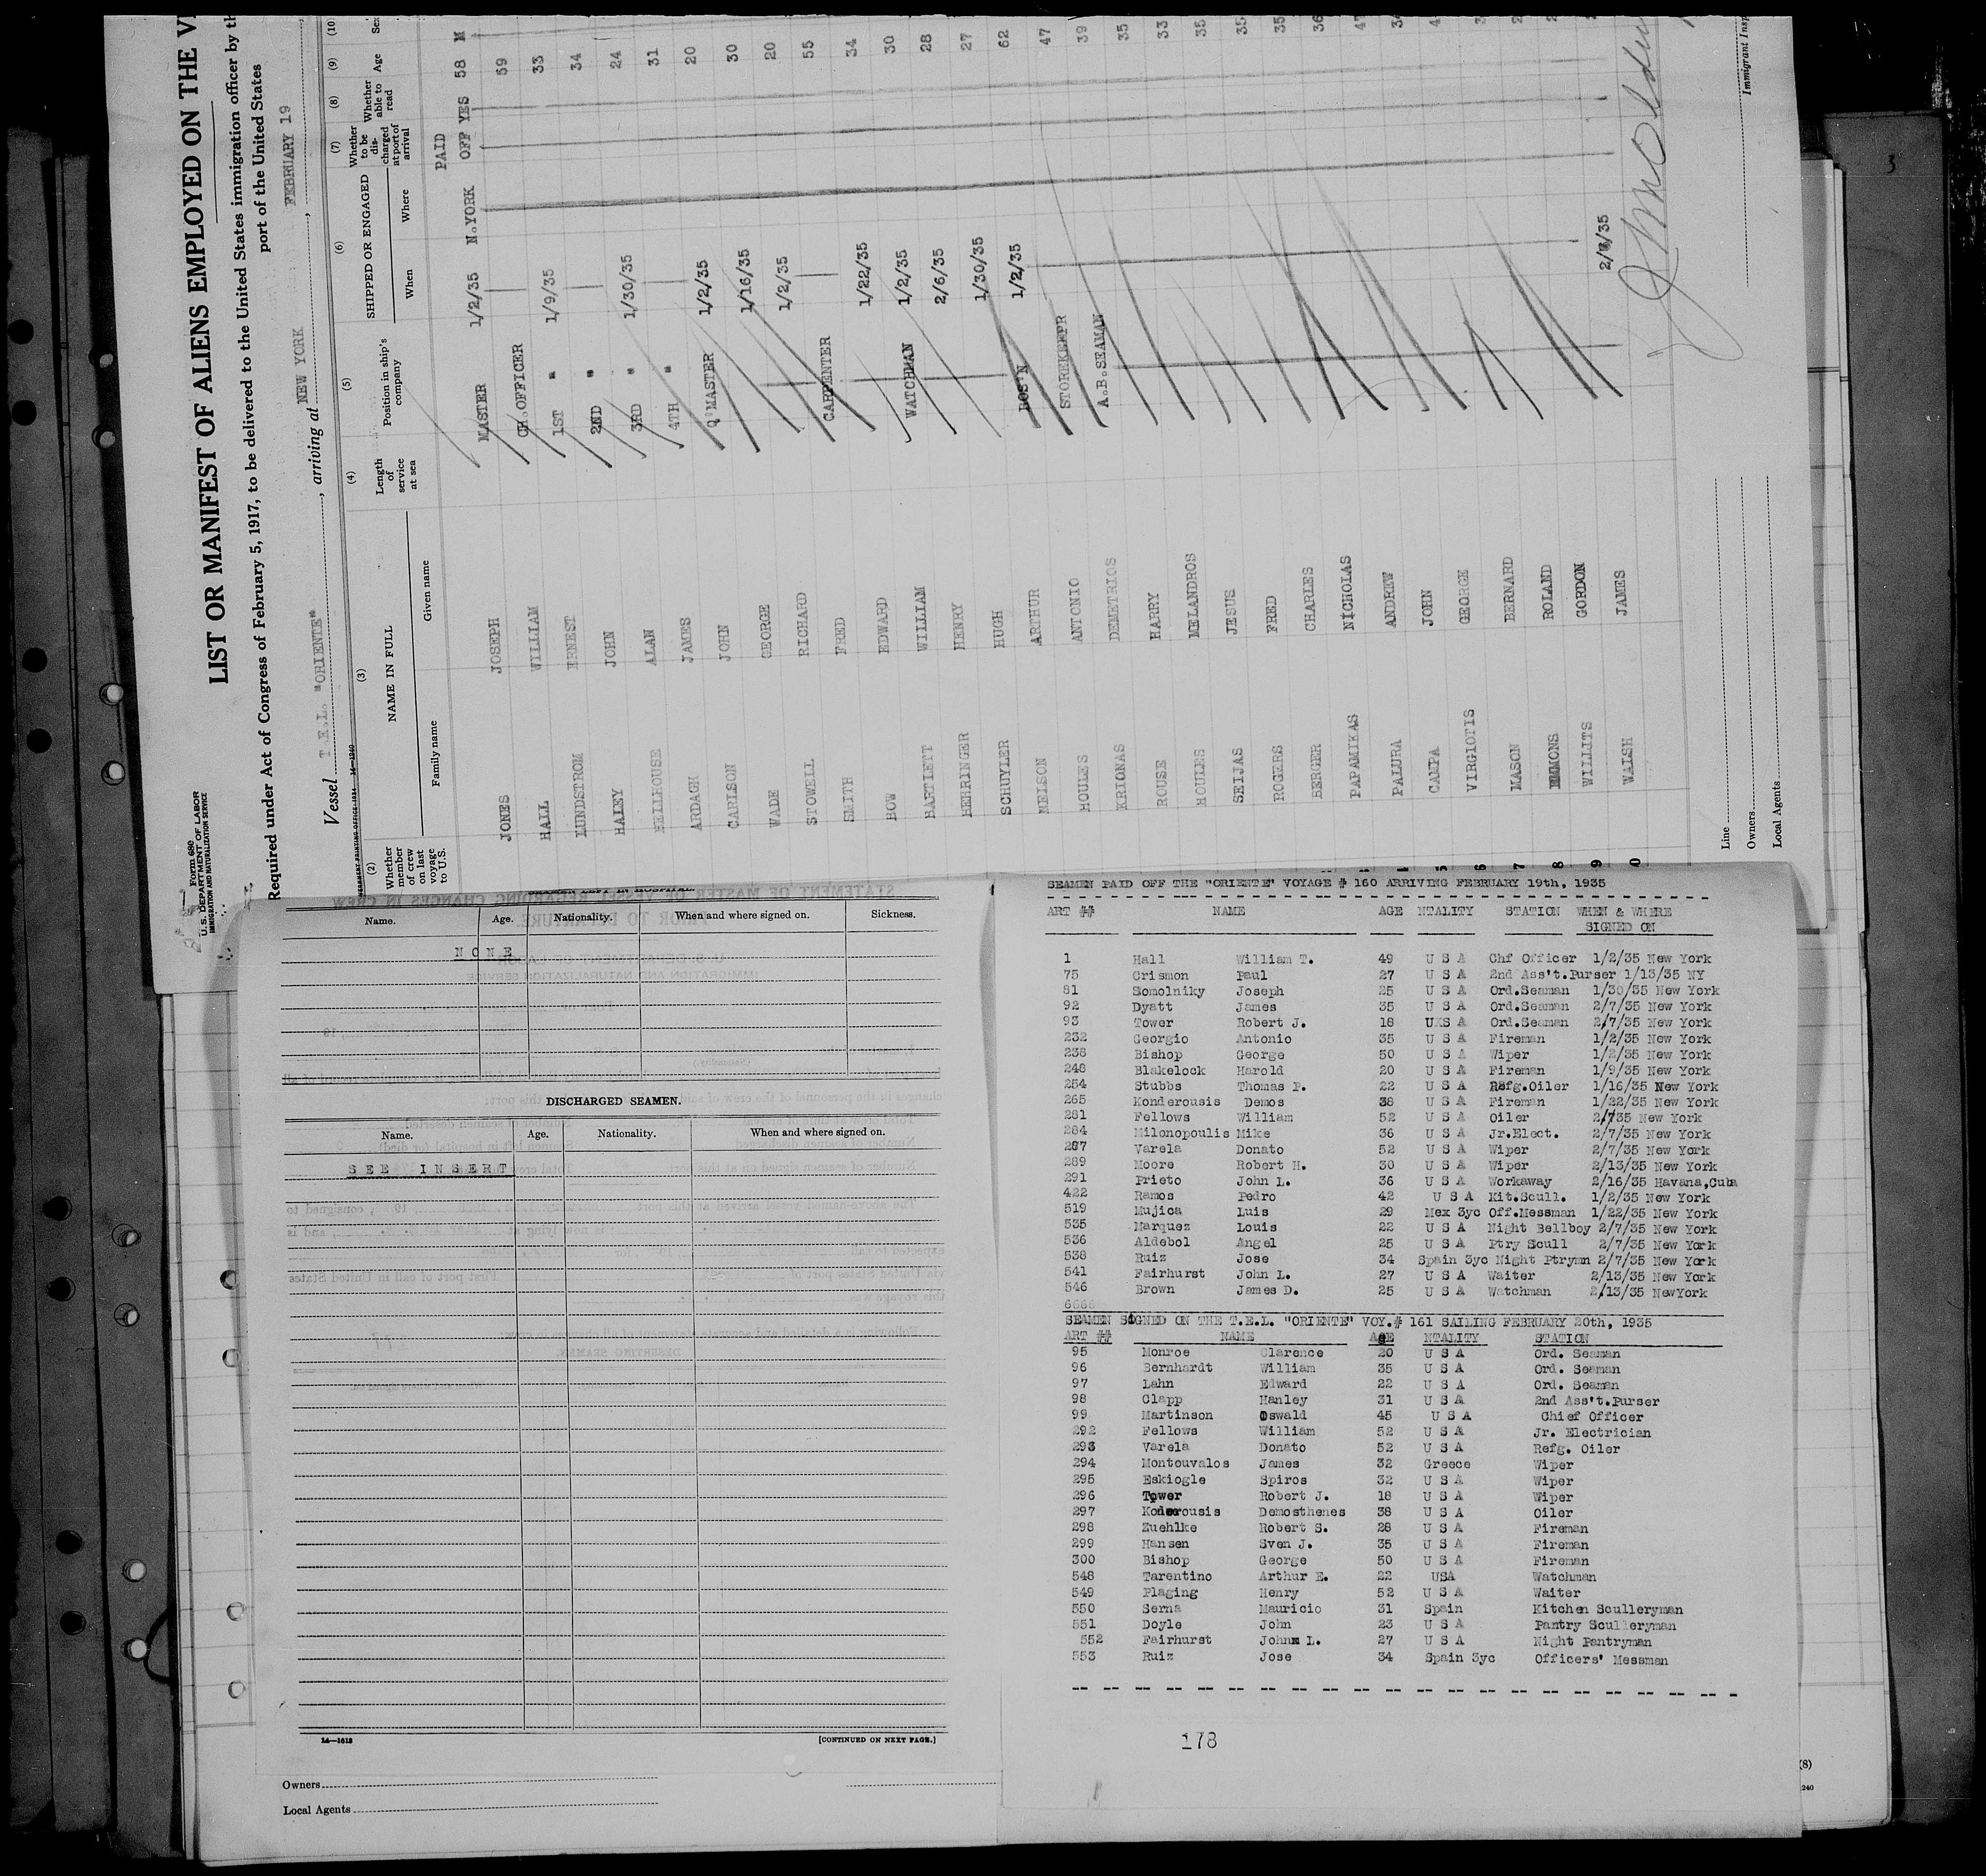 Form 680
U. S. DEPARTMENT OF LABOR
IMMIGRATION AND NATURALIZATION SERVICE
LIST OR MANIFEST OF ALIENS EMPLOYED ON THE
Required under Act of Congress of February 5, 1917, to be delivered to the United States immigration officer by
port of the United States
Vessel T.E.L. "ORIENTE", arriving at NEW YORK, FEBRUARY 19
(2) (3) (4) (5) (6) (7) (8) (9) (10)
Whether member of crew on last voyage to U.S.
NAME IN FULL
Family name Given name
Length of service at sea
Position in ship's company
SHIPPED OR ENGAGED
When Where
Whether to be discharged at port of arrival
Whether able to read
Age
JONES JOSEPH MASTER 1/2/35 N.YORK PAID OFF YES 58 M
HALL WILLIAM CH.OFFICER 59
LUNDSTROM ERNEST 1ST " 1/9/35 33
HALEY JOHN 2ND " 34
BELLHOUSE ALAN 3RD " 1/30/35 24
ARDAGH JAMES 4TH " 31
CARLSON JOHN Q'MASTER 1/2/35 20
WADE GEORGE 1/16/35 30
STOWELL RICHARD 1/2/35 20
SMITH FRED CARPENTER 55
BOW EDWARD 1/22/35 34
BARTLETT WILLIAM WATCHMAN 1/2/35 30
HERRINGER HENRY 2/6/35 28
SCHUYLER HUGH 1/30/35 27
NELSON ARTHUR BOS'N 1/2/35 62
HOULES ANTONIO STOREKEEPR 47
KRIONAS DEMETRIOS A.B.SEAMAN 39
ROUSE HARRY 35
HOULES MELANDROS 33
SEIJAS JESUS 35
ROGERS FRED 35
BERGER CHARLES 35
PAPAMIKAS NICHOLAS 36
PALURA ANDREW
CAMPA JOHN
VIRGIOTIS GEORGE
MASON BERNARD
EMMONS ROLAND
WILLITS GORDON
WALSH JAMES
Line
Owners
Local Agents
Immigrant Insp
SEAMEN LEFT IN HOSPITAL.
Name. Age. Nationality. When and where signed on. Sickness.
N O N E
DISCHARGED SEAMEN.
Name. Age. Nationality. When and where signed on.
SEE INSERT
14—1613 [CONTINUED ON NEXT PAGE.]
Owners
Local Agents
SEAMEN PAID OFF THE "ORIENTE" VOYAGE # 160 ARRIVING FEBRUARY 19th, 1935
ART ## NAME AGE NTALITY STATION WHEN & WHERE
SIGNED ON
1 Hall William T. 49 U S A Chf Officer 1/2/35 New York
75 Crismon Paul 27 U S A 2nd Ass't.Purser 1/13/35 NY
81 Somolniky Joseph 25 U S A Ord.Seaman 1/30/35 New York
92 Dyatt James 35 U S A Ord.Seaman 2/7/35 New York
93 Tower Robert J. 18 UXS A Ord.Seaman 2/7/35 New York
232 Georgio Antonio 35 U S A Fireman 1/2/35 New York
238 Bishop George 50 U S A Wiper 1/2/35 New York
248 Blakelock Harold 20 U S A Fireman 1/9/35 New York
254 Stubbs Thomas P. 22 U S A Refg.Oiler 1/16/35 New York
265 Konderousis Demos 38 U S A Fireman 1/22/35 New York
281 Fellows William 52 U S A Oiler 2/735 New York
284 Milonopoulis Mike 36 U S A Jr.Elect. 2/7/35 New York
287 Varela Donato 52 U S A Wiper 2/7/35 New York
289 Moore Robert H. 30 U S A Wiper 2/13/35 New York
291 Prieto John L. 36 U S A Workaway 2/16/35 Havana,Cuba
422 Ramos Pedro 42 U S A Kit.Scull. 1/2/35 New York
519 Mujica Luis 29 Mex 3yc Off.Messman 1/22/35 New York
535 Marquez Louis 22 U S A Night Bellboy 2/7/35 New York
536 Aldebol Angel 25 U S A Ptry Scull 2/7/35 New York
538 Ruiz Jose 34 Spain 3yc Night Ptrymn 2/7/35 New York
541 Fairhurst John L. 27 U S A Waiter 2/13/35 New York
546 Brown James D. 25 U S A Watchman 2/13/35 NewYork
6666
SEAMEN SIGNED ON THE T.E.L. "ORIENTE" VOY.# 161 SAILING FEBRUARY 20th, 1935
ART ## NAME AGE NTALITY STATION
95 Monroe Clarence 20 U S A Ord. Seaman
96 Bernhardt William 35 U S A Ord. Seaman
97 Lahn Edward 22 U S A Ord. Seaman
98 Clapp Hanley 31 U S A 2nd Ass't.Purser
99 Martinson Oswald 45 U S A Chief Officer
292 Fellows William 52 U S A Jr. Electrician
293 Varela Donato 52 U S A Refg. Oiler
294 Montouvalos James 32 Greece Wiper
295 Eskiogle Spiros 32 U S A Wiper
296 Tower Robert J. 18 U S A Wiper
297 Konderousis Demosthenes 38 U S A Oiler
298 Zuehlke Robert S. 28 U S A Fireman
299 Hansen Sven J. 35 U S A Fireman
300 Bishop George 50 U S A Fireman
548 Tarentino Arthur E. 22 USA Watchman
549 Plaging Henry 52 U S A Waiter
550 Serna Mauricio 31 Spain Kitchen Sculleryman
551 Doyle John 23 U S A Pantry Sculleryman
552 Fairhurst Johnx L. 27 U S A Night Pantryman
553 Ruiz Jose 34 Spain 3yc Officers' Messman
178